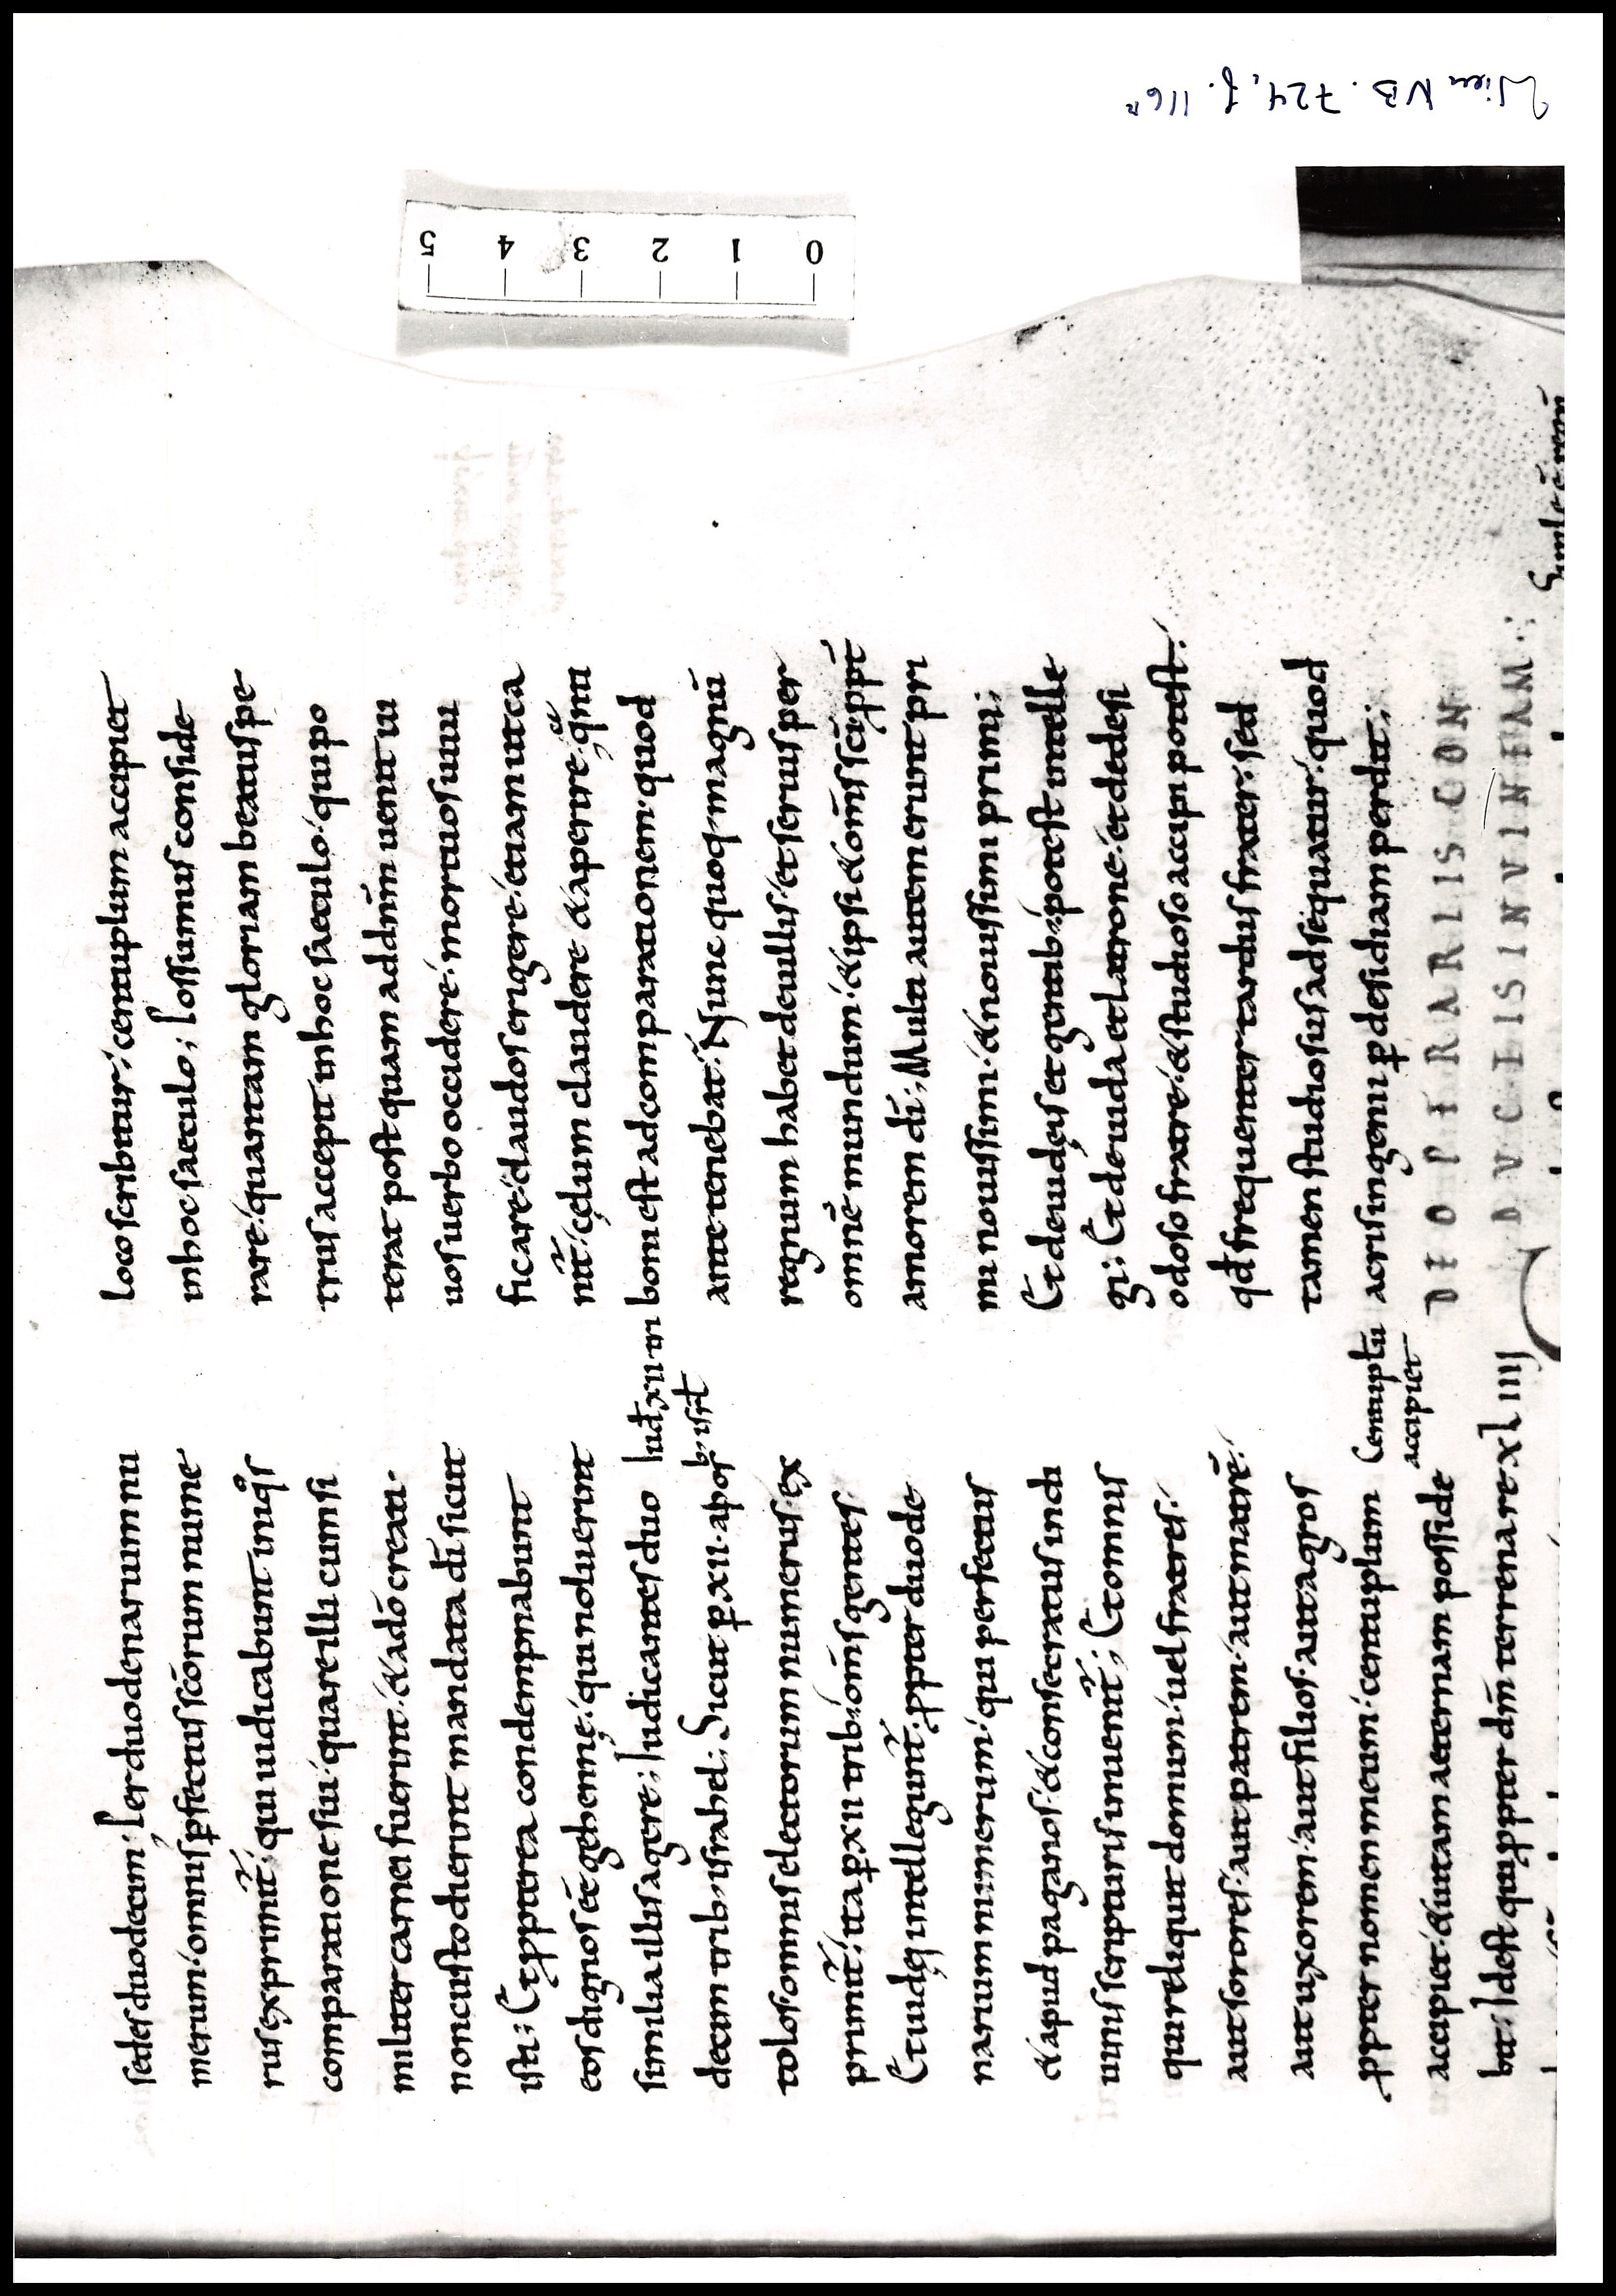 Wien NB. 724, f. 116r
0 1 2 3 4 5
sedes duodecim· Per duodenarum nu
merum· omnis ꝑfectus scōrum nume
rus exprimit̃· qui iudicabunt iniqͦs
comparatione sui· quare illi cum si
militer carnei fuerunt· & a dō creati·
non custodierunt mandata dī sicut
isti; Et ꝓpterea condempnabunt
eos dignos ēē gehennę· qui noluerint
similia illis agere; Iudicantes duo
decim trib; israhel; Sicut ꝑ xii· apos
tolos· omnis electorum numerus ex
primit̃· ita ꝑ xii trib; om̄s gentes·
Et iudęi intelleguntr̃· ꝓpter duode
narium numerum· qui perfectus
& apud paganos· & consecratus in di
uinis scripturis inuenit̃; Et omnis
qui reliquit domum· uel fratres·
aut sorores· aut patrem· aut matrē·
aut uxorem· aut filios· aut agros
ꝓpter nomen meum· centuplum
accipiet· & uitam aeternam posside
bit· Idest qui ꝓpter dm̄ terrena re
Iud̄ xii· in
b; isrl̄
Centuplū
accipiet
xl iiij
loco scribitur· centuplum accipiet
in hoc saeculo; Possumus conside
rare· quantam gloriam beatus pe
trus accepit in hoc saeculo· qui po
terat post quam ad dn̄m uenit ui
uos uerbo occidere· mortuos uiui
ficare· claudos erigere· etiam ut ca
nit̃· cęlum claudere & aperire· qm̄
bonī est ad comparationem· quod
ante tenebat· Nunc quoq; magnū
regnum habet de illis· et seruis per
omnē mundum· & ipsi & om̄s scī ꝓpt̄
amorem dī; Multi autem erunt pri
mi nouissimi· & nouissimi primi;
Et de iudęis et gentib; potest intelle
gi; Et de iuda et latrone· et de desi
odoso fratre· & studioso accipi potest·
qd̄ frequenter tardus frater· sed
tamen studiosus adsequatur· quod
acris ingenii ꝑ desidiam perdit;
DE OPERARIIS CON
DVCTIS IN VINEAM·;
Simile ē regnū